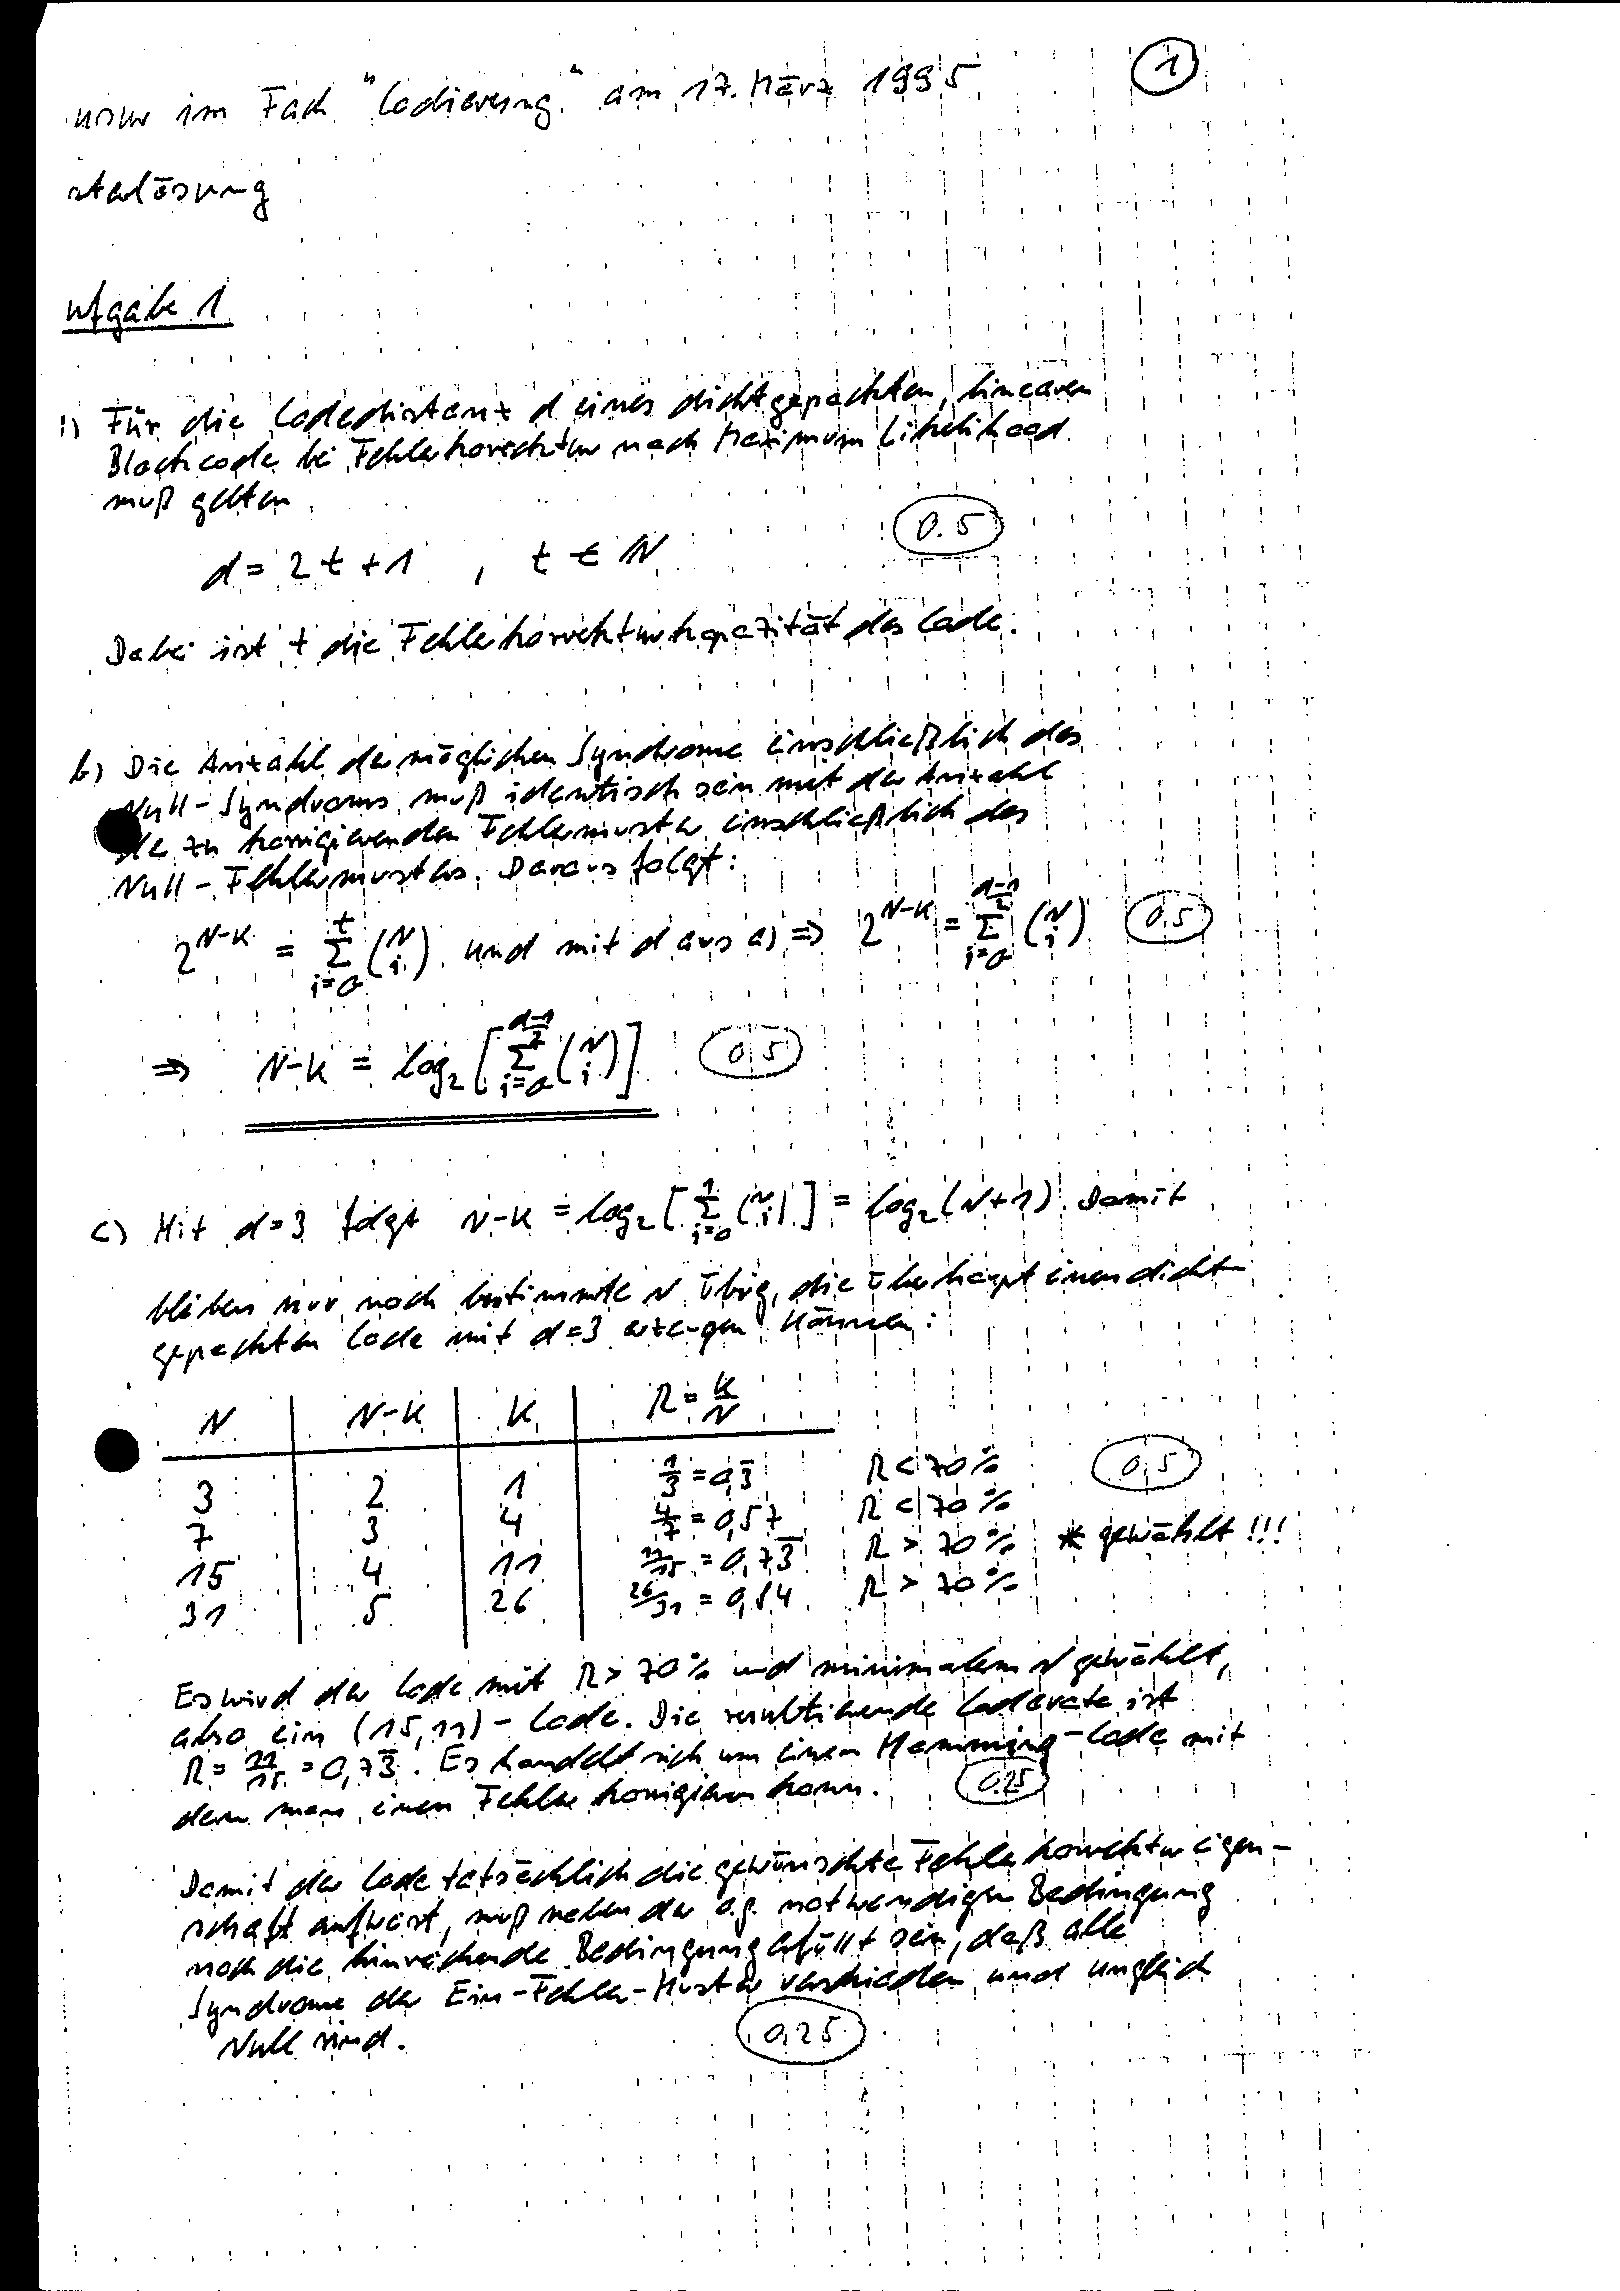 usur im Fach "Codierung" am 17. März 1995
1
sterlösung
ufgabe 1
1) Für die Codedistanz d eines dichtgepackten, linearen
Blockcode bei Fehlerkorrektur nach Maximum Likelihood
muß gelten
d = 2t + 1 , t ∈ N
0.5
Dabei ist t die Fehlerkorrekturkapazität des Code.
b) Die Anzahl der möglichen Syndrome einschließlich des
Null-Syndroms muß identisch sein mit der Anzahl
der zu korrigierenden Fehlermuster einschließlich des
Null-Fehlermusters. Daraus folgt:
2^{N-K} = \sum_{i=0}^{t} \binom{N}{i} und mit d aus a) ⇒ 2^{N-K} = \sum_{i=0}^{\frac{d-1}{2}} \binom{N}{i} 0,5
⇒ N-K = log_2 [ \sum_{i=0}^{\frac{d-1}{2}} \binom{N}{i} ] 0,5
c) Mit d=3 folgt N-K = log_2 [ \sum_{i=0}^{1} \binom{N}{i} ] = log_2(N+1) Damit
bleiben nur noch bestimmte N übrig, die überhaupt einen dicht
gepackten Code mit d=3 erzeugen können:
N N-K K R = \frac{K}{N}
3 2 1 \frac{1}{3} = 0,\overline{3} R < 70% 0,5
7 3 4 \frac{4}{7} = 0,57 R < 70%
15 4 11 \frac{11}{15} = 0,7\overline{3} R > 70% * gewählt !!!
31 5 26 \frac{26}{31} = 0,84 R > 70%
Es wird der Code mit R > 70% und minimalem N gewählt,
also ein (15,11)-Code. Die resultierende Coderate ist
R = \frac{11}{15} = 0,7\overline{3}. Es handelt sich um einen Hamming-Code mit
dem man einen Fehler korrigieren kann. 0.25
Damit der Code tatsächlich die gewünschte Fehlerkorrektureigen-
schaft aufweist, muß neben der o.g. notwendigen Bedingung
noch die hinreichende Bedingung erfüllt sein, daß alle
Syndrome der Ein-Fehler-Muster verschieden und ungleich
Null sind. 0,25